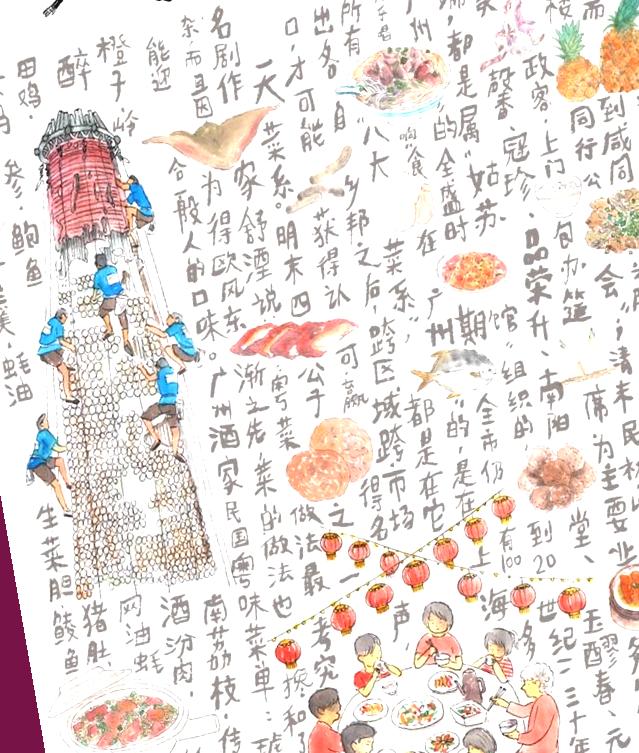 而
到咸同
会，清末民
主要业
楼
同行公
席为
堂、玉醪春、元
政客
上门包办筵
南阳
到20世纪二三十年
馨香
寇珍、品荣升、
馆”组织的
有100多
都是属“姑苏
期
全市仍
上海
广州
的全盛时
广州
”的，是在
响食
在
菜系”，
都是在它
所有
“八大
之后，跨区域跨市场
得名
出各自
乡邦
获得认可
赢
之一
声
口，才可能
菜系。明末四公子
粤菜
做法最考究
一天
家舒湮说
渐之先，菜的做法也
搀和了
名剧作
为得欧风东
广州酒家民国粤味菜单：琥
杂而且因
合般人的口味。
南荔枝、
能迎
酒汾肉、
橙子、岭
网油蚝
醉
猪肚
生菜胆、鲮鱼
田鸡、
参、鲍鱼
、蚝油